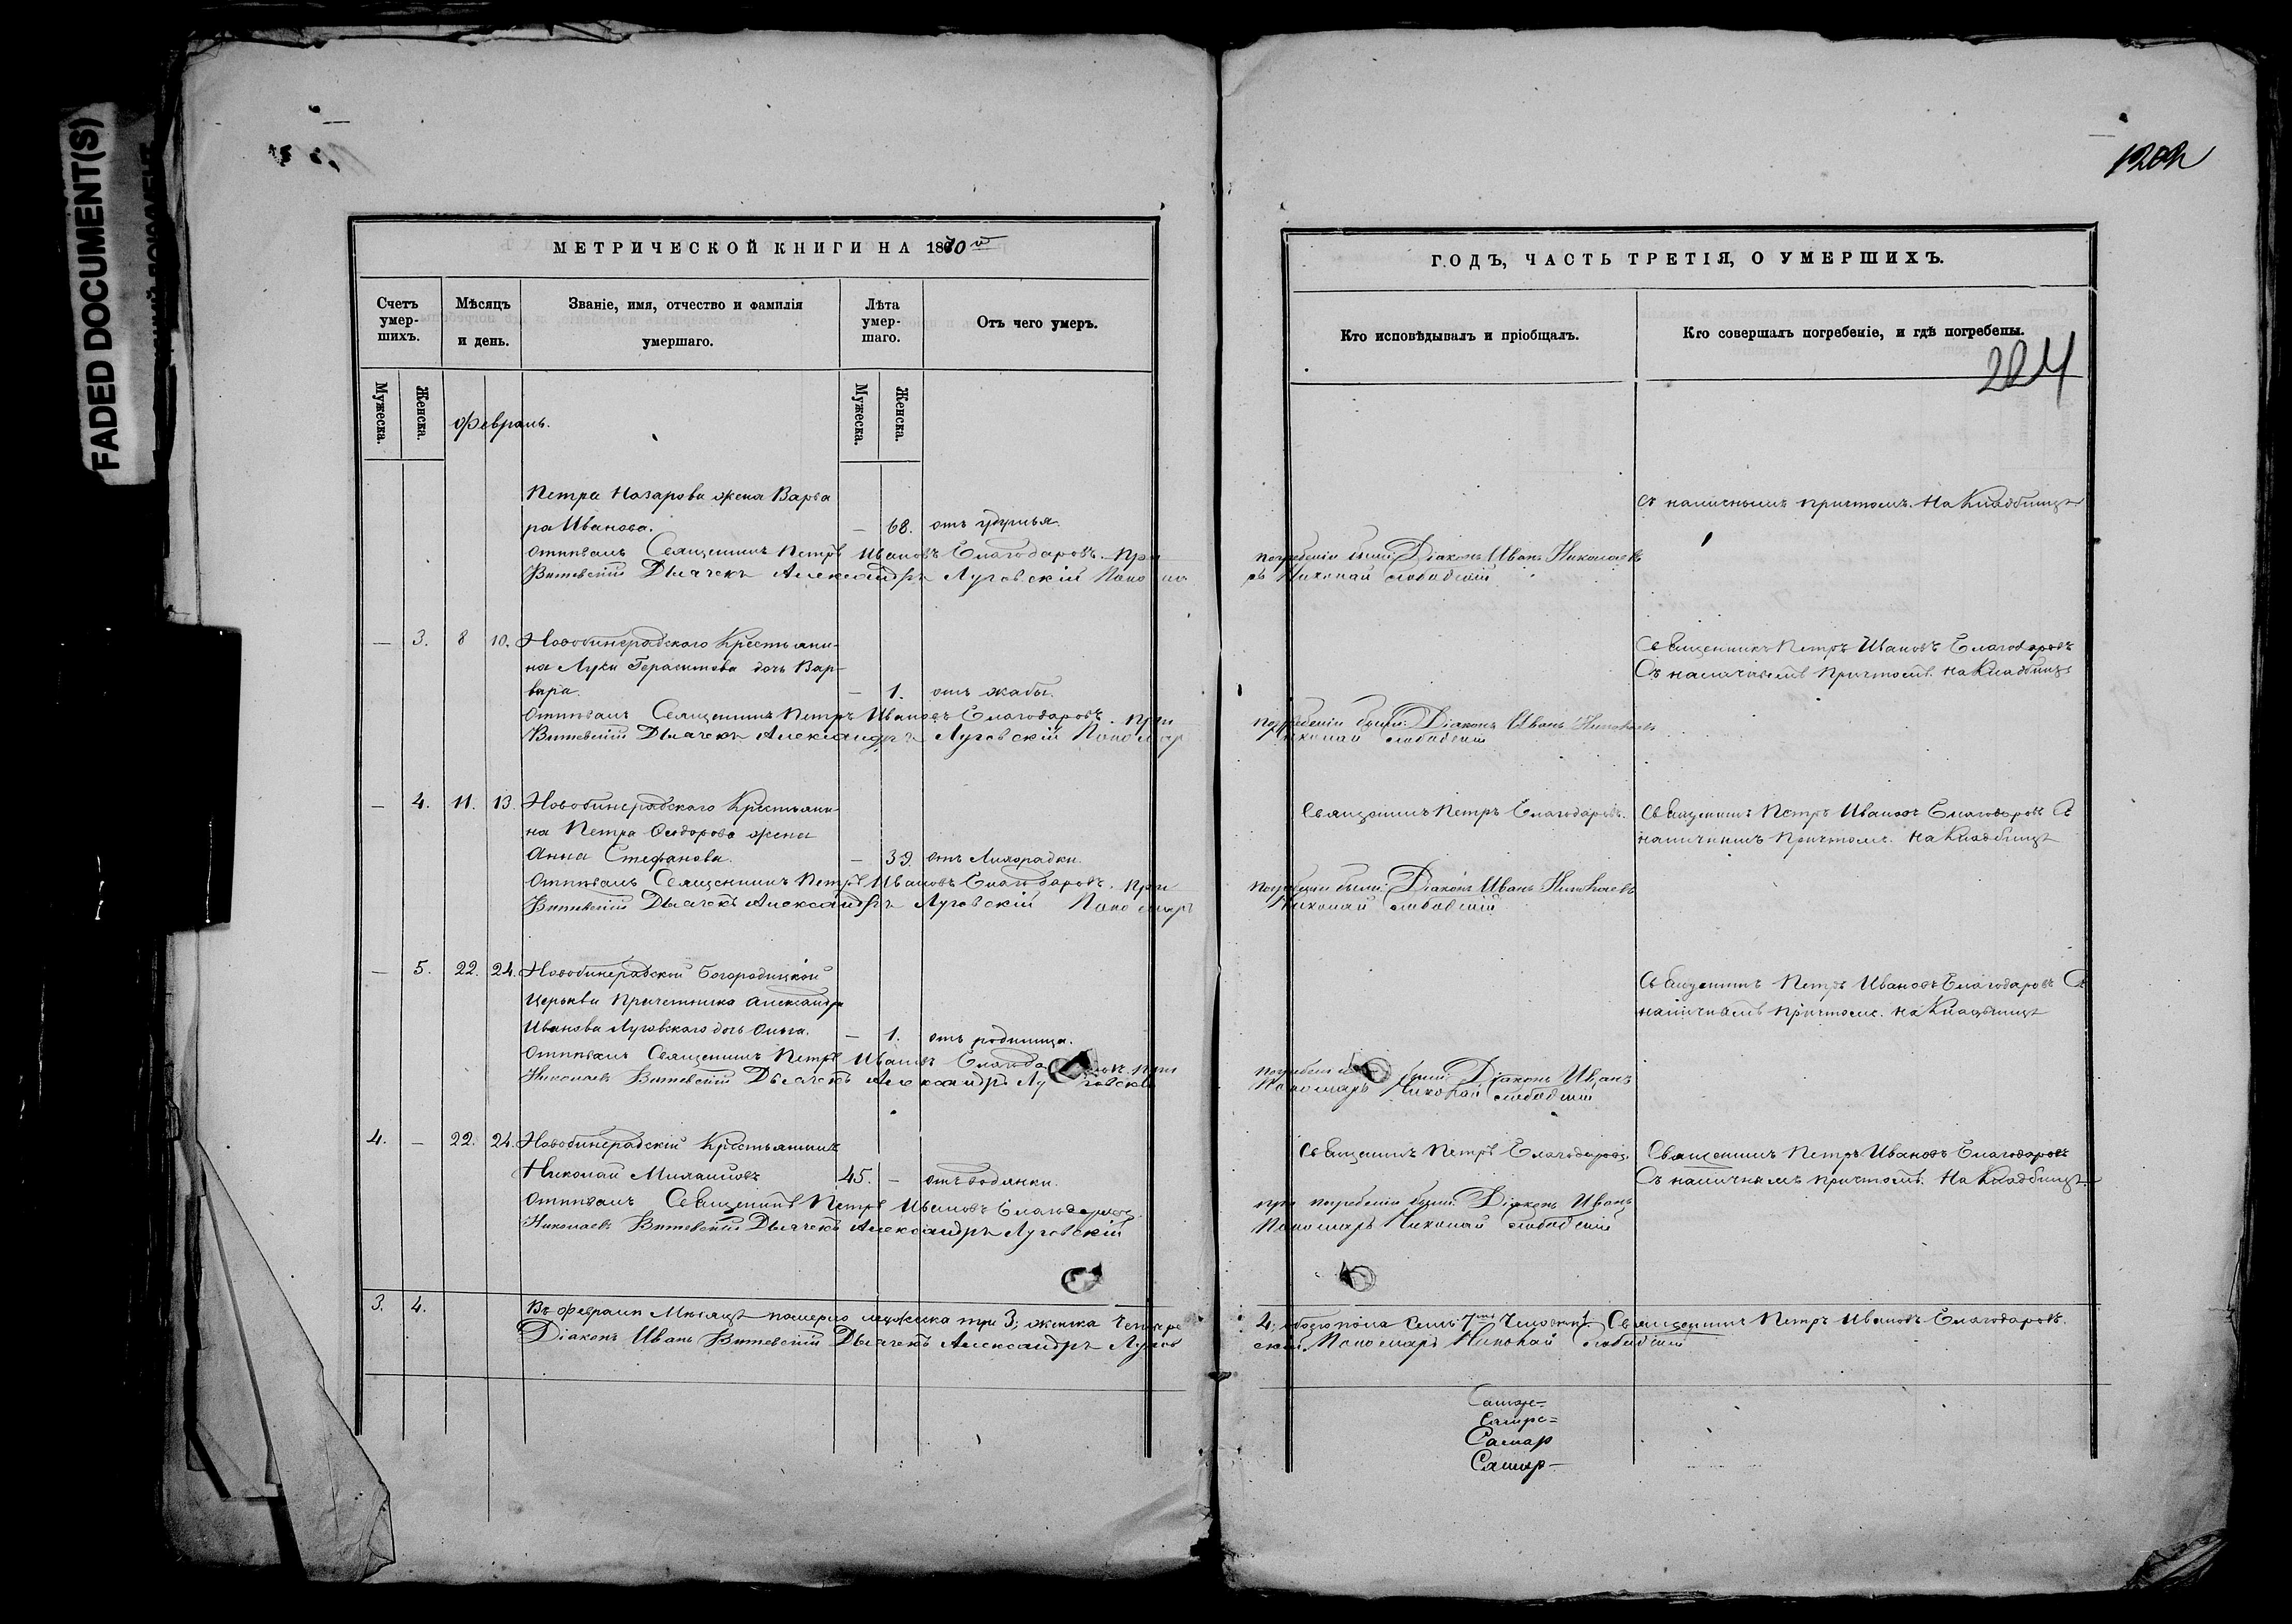 FADED DOCUMENT(S)
МЕТРИЧЕСКОЙ КНИГИ НА 1870 й
Счетъ умер-шихъ.
Мѣсяцъ и день.
Званіе, имя, отчество и фамилія умершаго.
Лѣта умер-шаго.
Отъ чего умеръ.
Мужеска.
Женска.
Февраль.
Мужеска.
Женска.
Петра Назарова жена Варва
ра Иванова. — 68. отъ удушья.
Отпѣвалъ Священникъ Петръ Ивановъ Благодаровъ. При
Витевскій Дьячекъ Александръ Луговскій Поно ма
— 3. 8 10. Новобинарадскаго Крестьяни-
на Луки Герасимова дочь Вар-
вара. — 1. отъ жабы.
Отпѣвалъ Священникъ Петръ Ивановъ Благодаровъ. При
Витевскій Дьячекъ Александръ Луговскій Пономар
— 4. 11. 13. Новобинарадскаго Крестьяни-
на Петра Сидорова жена
Анна Стефанова. — 39. отъ Лихорадки.
Отпѣвалъ Священникъ Петръ Ивановъ Благодаровъ. При
Витевскій Дьячекъ Александръ Луговскій Пономарь
— 5. 22. 24. Новобинарадской Богородицкой
Церькви Причетника Александра
Иванова Луговскаго дочь Ольга. — 1. отъ родимца.
Отпѣвалъ Священникъ Петръ Ивановъ Благода ровъ. При
Николаевъ Витевскій Дьячекъ Александръ Лу говской
4. — 22. 24. Новобинарадскій Крестьянинъ
Николай Михайловъ 45. — отъ водянки.
Отпѣвалъ Священникъ Петръ Ивановъ Благодаровъ.
Николаевъ Витевскій Дьячекъ Александръ Луговскій
3. 4. Въ Февралѣ Мѣсяцѣ померло мужска три 3; женска Четыре
Діаконъ Иванъ Витевскій Дьячекъ Александръ Лугов
1202
ГОДЪ, ЧАСТЬ ТРЕТІЯ, О УМЕРШИХЪ.
Кто исповѣдывалъ и пріобщалъ.
Кто совершалъ погребеніе, и гдѣ погребены.
204
Съ наличнымъ причтомъ. На Кладбищѣ
погребеніи были: Діаконъ Иванъ Николаевъ
рь Николай Слободскій
Священникъ Петръ Ивановъ Благодаровъ
Съ наличнымъ Причтомъ. на Кладбищѣ
погребеніи были: Діаконъ Иванъ Николаевъ
Николай Слободскій
Священникъ Петръ Благодаровъ. Священникъ Петръ Ивановъ Благодаровъ Съ
наличнымъ Причтомъ. на Кладбищѣ
погребеніи были: Діаконъ Иванъ Николаевъ
Николай Слободскій
Священникъ Петръ Ивановъ Благодаровъ Съ
наличнымъ Причтомъ. на Кладбищѣ
погребеніи были: Діаконъ Иванъ
Пономарь Николай Слободскій
Священникъ Петръ Благодаровъ. Священникъ Петръ Ивановъ Благодаровъ
Съ наличнымъ причтомъ. На Кладбищѣ
при погребеніи были: Діаконъ Иванъ
Пономарь Николай Слободскій
4; обоего пола Семь 7мь Человѣкъ. Священникъ Петръ Ивановъ Благодаровъ.
скій. Пономарь Николай Слободскій
Самар
Самар